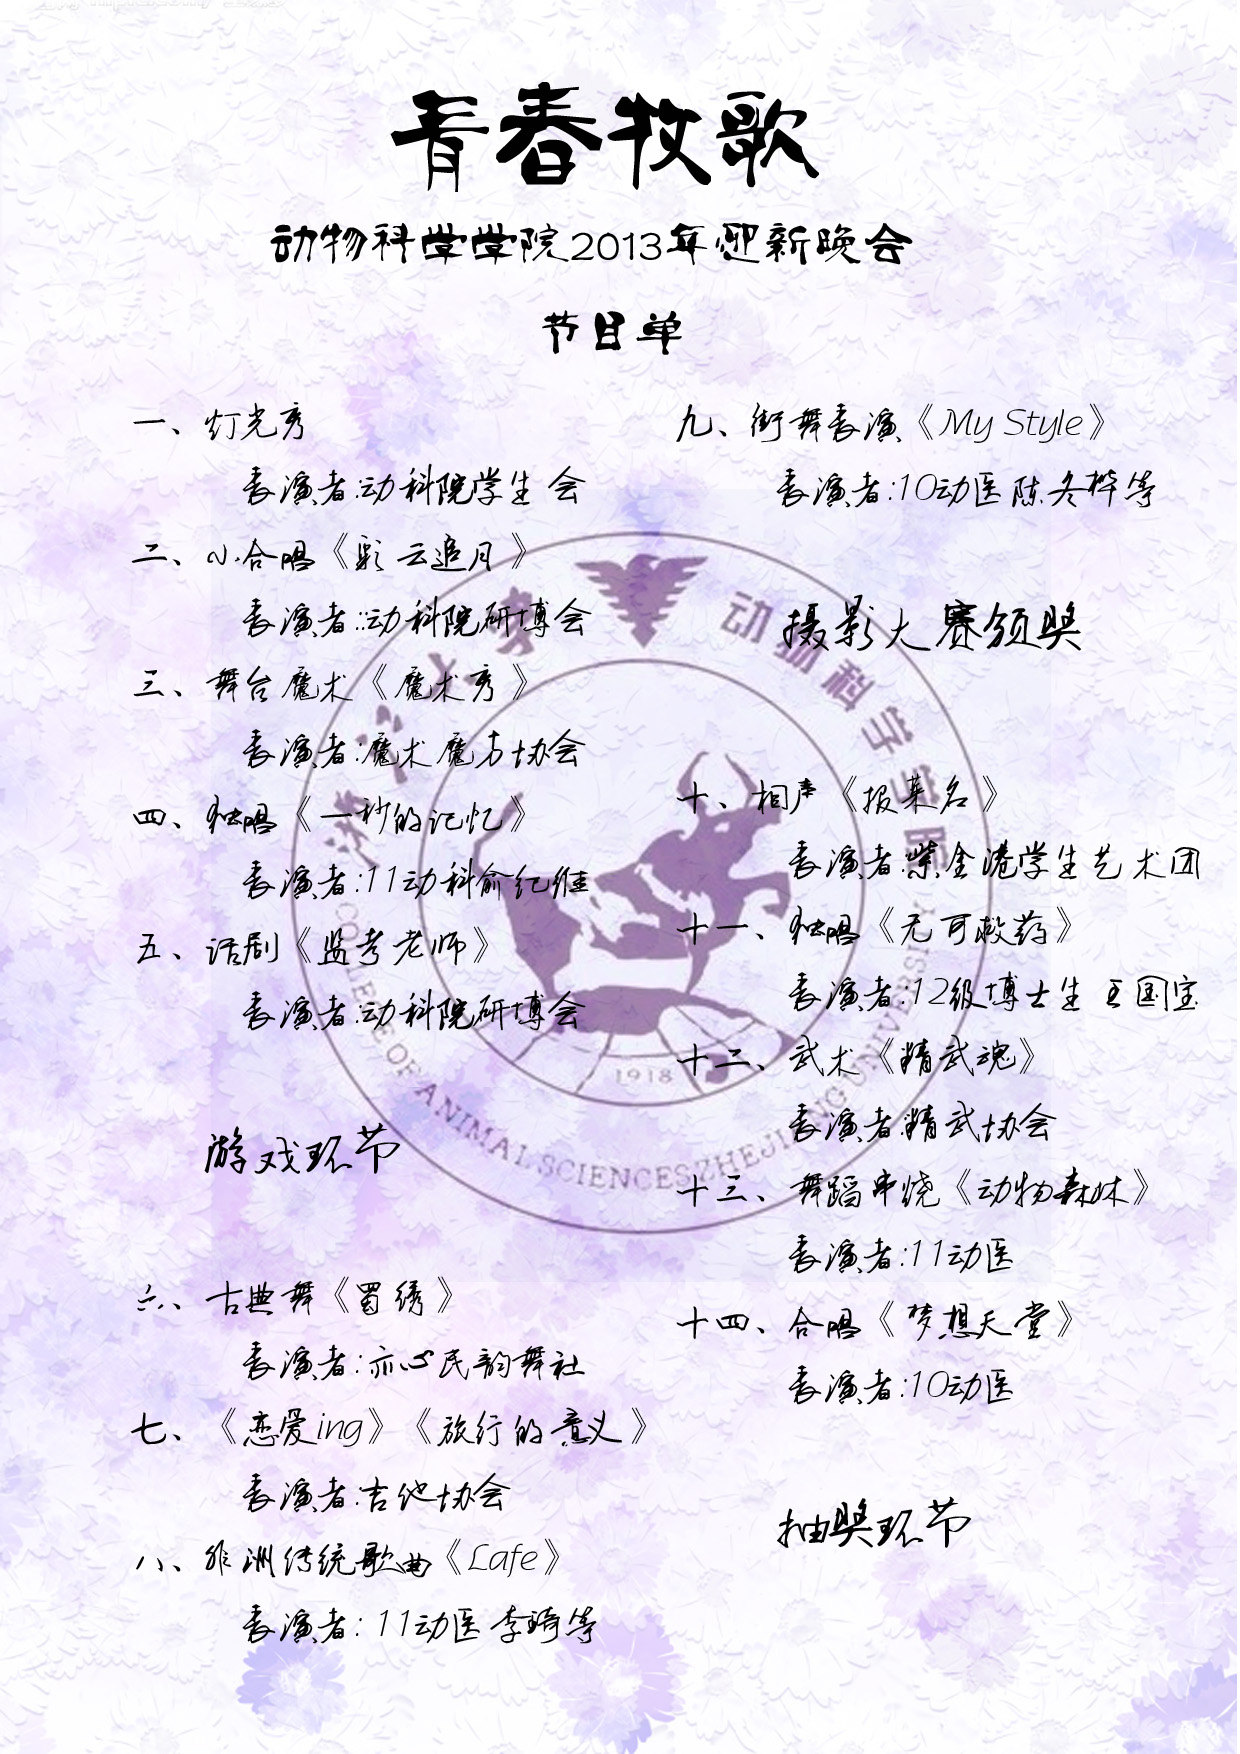 青春牧歌
动物科学学院2013年迎新晚会
节目单
一、灯光秀
表演者:动科院学生会
二、小合唱《彩云追月》
表演者::动科院研博会
三、舞台魔术《魔术秀》
表演者:魔术魔方协会
四、独唱《一秒的记忆》
表演者:11动科俞纪维
五、话剧《监考老师》
表演者:动科院研博会
游戏环节
六、古典舞《蜀绣》
表演者:亦心民韵舞社
七、《恋爱ing》《旅行的意义》
表演者:吉他协会
八、非洲传统歌曲《Lafe》
表演者: 11动医 李琦等
九、街舞表演《My Style》
表演者:10动医 陈冬桦等
摄影大赛颁奖
十、相声《报菜名》
表演者:紫金港学生艺术团
十一、独唱《无可救药》
表演者:12级博士生 王国宝
十二、武术《精武魂》
表演者:精武协会
十三、舞蹈串烧《动物森林》
表演者:11动医
十四、合唱《梦想天堂》
表演者:10动医
抽奖环节
浙江大学 动物科学学院
COLLEGE OF ANIMAL SCIENCES ZHEJIANG UNIVERSITY
1918